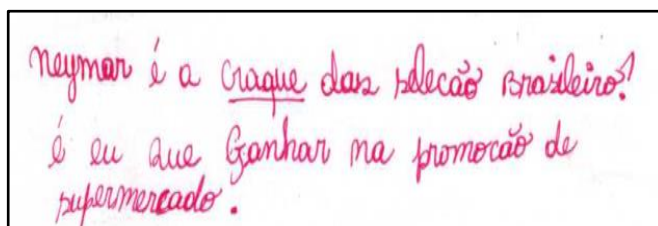 neymar é a craque das selecão Brasileiro?
é eu que Ganhar na promocão de
supermercado.